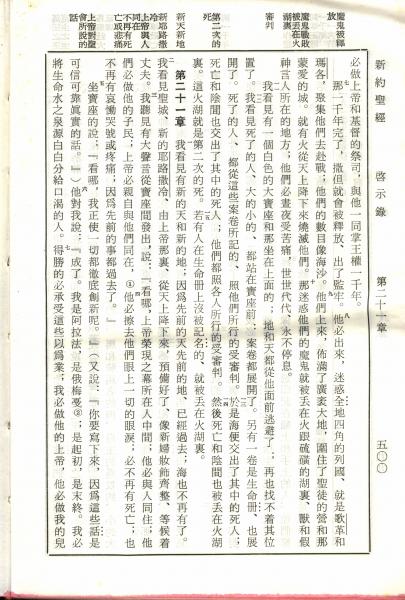 新約聖經　啓示錄　第二十一章　五〇〇
魔鬼被釋放
魔鬼戰敗被丟在火湖裏
審判
第二次的死
新天新地
新耶路撒冷
上帝與人同在
不再有死亡或悲痛
上帝對聖會所說的話
必做上帝和基督的祭司，與他一同掌王權一千年。
那一千年完了，撒但就會被釋放、出了監牢。他必出來，迷惑全地四角的列國、就是歌革和
瑪各，聚集他們去赴戰。他們的數目像海沙。他們上來，佈滿了廣袤大地，圍住了聖徒的營和那
蒙愛的城，就有火從天上降下來燒滅他們。那迷惑他們的魔鬼就被丟在火跟硫磺的湖裏、獸和假
神言人所在的地方；他們必晝夜受苦痛，世世代代、永不停息。
我看見有一個白色的大寶座和那坐在上面的；地和天都從他面前逃避了，再也找不着其位
置了。我看見死了的人、大的小的、都站在寶座前；案卷都展開了。另有一卷是生命冊、也展
開了。死了的人、都從這些案卷所記的、照他們所行的受審判。於是海便交出了其中的死人；
死亡和陰間也交出了其中的死人；他們都照各人所行的受審判。然後死亡和陰間也被丟在火湖
裏。這火湖就是第二次的死。若有人在生命冊上沒被記名的、就被丟在火湖裏。
第二十一章　我看見有新的天和新的地；因爲先前的天先前的地、已經過去；海也不再有了。
我看見聖城、新的耶路撒冷、由上帝那裏、從天上降下來，預備好了、像新婦妝飾齊整、等候着
丈夫。我聽見有大聲音從寶座間發出，說：『看哪，上帝榮現之幕所在人中間；他必與人同住；他
們必做他的子民；上帝必親自與他們同在。①他必擦去他們眼上一切的眼淚；必不再有死亡；也
不再有哀慟哭號或疼痛；因爲先前的事都過去了。』
坐寶座的說：『看哪，我正使一切都徹底創新呢。』（又說：『你要寫下來，因爲這些話是
可信可靠眞實的話。』）他對我說：『成了。我是阿拉法，是俄梅戛②；是起初，是末終。我必
將生命水之泉源白白分給口渴的人。得勝的必承受這些以爲業；我必做他的上帝，他必做我的兒